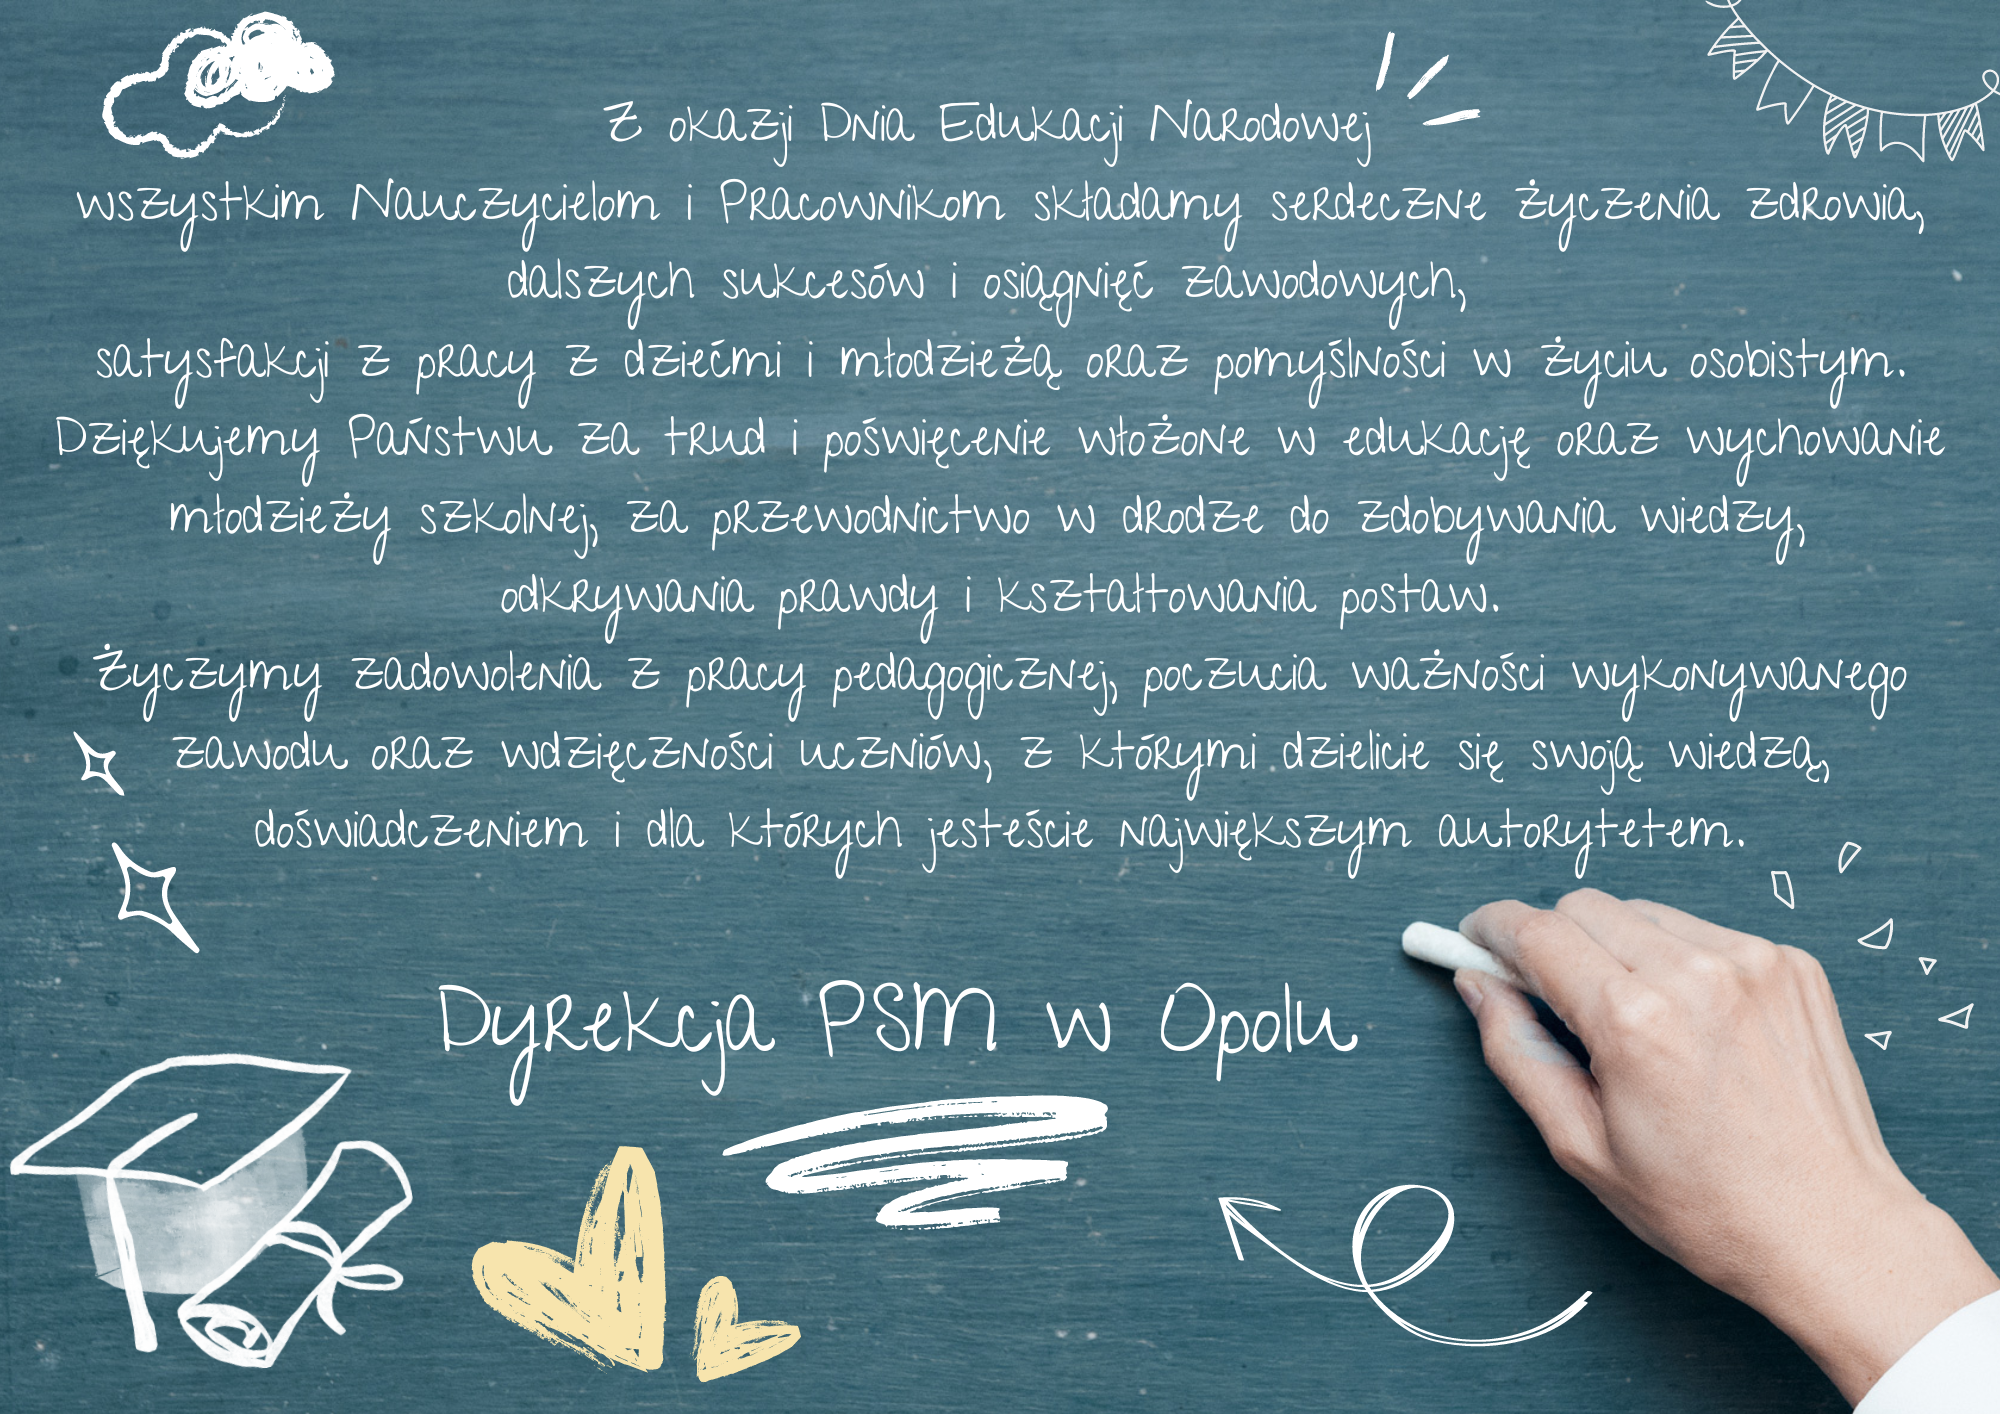 Z okazji Dnia Edukacji Narodowej
wszystkim Nauczycielom i Pracownikom składamy serdeczne życzenia zdrowia,
dalszych sukcesów i osiągnięć zawodowych,
satysfakcji z pracy z dziećmi i młodzieżą oraz pomyślności w życiu osobistym.
Dziękujemy Państwu za trud i poświęcenie włożone w edukację oraz wychowanie
młodzieży szkolnej, za przewodnictwo w drodze do zdobywania wiedzy,
odkrywania prawdy i kształtowania postaw.
Życzymy zadowolenia z pracy pedagogicznej, poczucia ważności wykonywanego
zawodu oraz wdzięczności uczniów, z którymi dzielicie się swoją wiedzą,
doświadczeniem i dla których jesteście największym autorytetem.
Dyrekcja PSM w Opolu